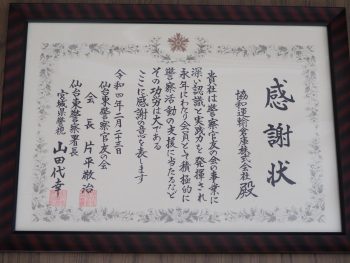 感謝状
協和運輸倉庫株式会社 殿
貴社は警察官友の会の事業に
深い認識と実践力を発揮され
永年にわたり会員として積極的に
警察活動の支援に当たるなど
その功労は大である
ここに感謝の意を表します
令和四年二月二十五日
仙台東警察官友の会
会長 片平敬治
仙台東警察署長
宮城県警視 山田代幸